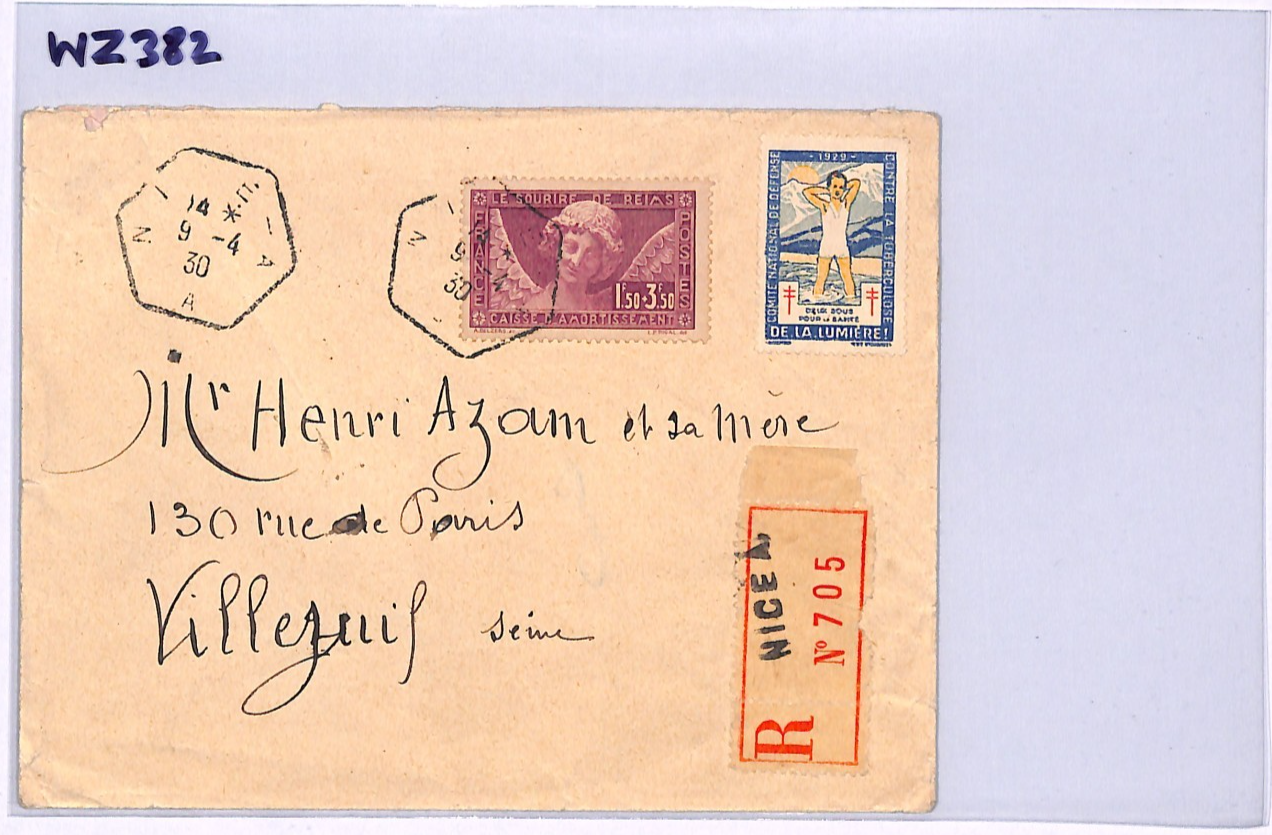 WZ382
14 * IT.
9 -4
30
A
N I
A
N I
9 -4
30
LE SOURIRE DE REIMS
FRANCE
POSTES
1F50+3F50
CAISSE D'AMORTISSEMENT
- 1929 -
COMITÉ NATIONAL DE DÉFENSE
CONTRE LA TUBERCULOSE
DEUX SOUS
POUR LA SANTÉ
DE.LA.LUMIÈRE!
Mr Henri Azam et sa mère
130 rue de Paris
Villejuif Seine
NICE A
R Nº 705